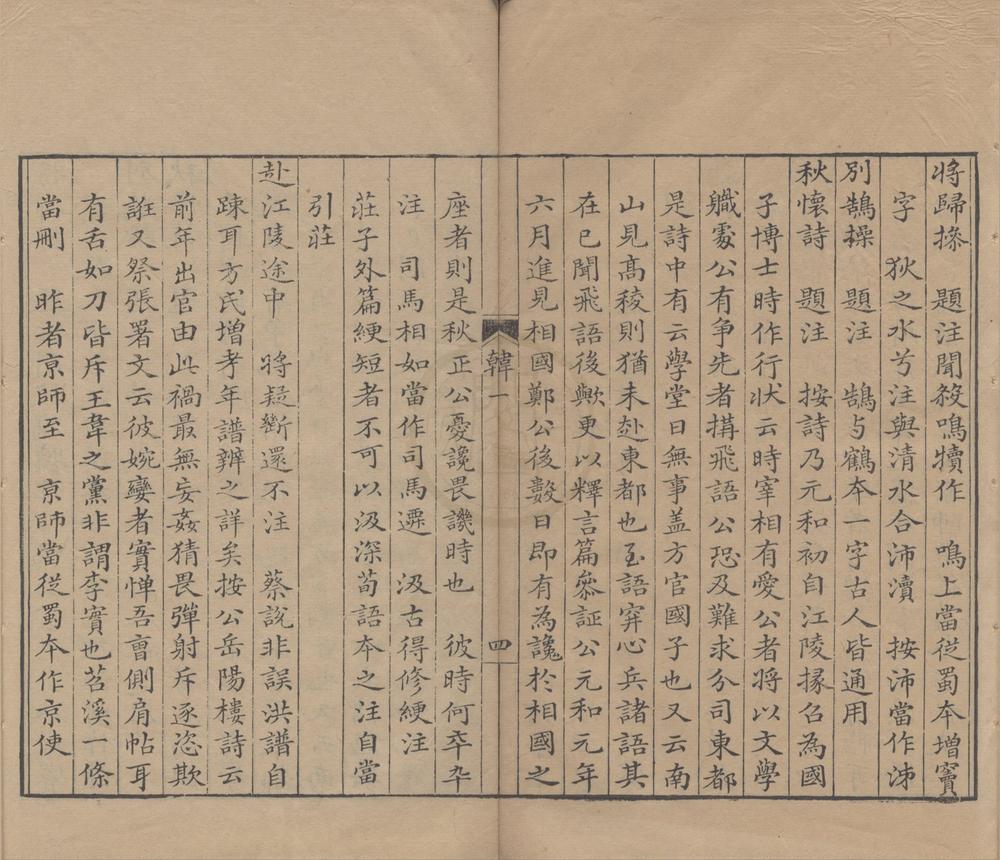 將歸操　題注聞殺鳴犢作　鳴上當從蜀本增竇
字　狄之水兮注與清水合沛瀆　按沛當作泲
別鵠操　題注　鵠与鶴本一字古人皆通用
秋懷詩　題注　按詩乃元和初自江陵掾召為國
子博士時作行狀云時宰相有愛公者將以文學
職處公有爭先者搆飛語公恐及難求分司東都
是詩中有云學堂日無事盖方官國子也又云南
山見髙稜則猶未赴東都也至語穽心兵諸語其
在已聞飛語後歟更以釋言篇叅証公元和元年
六月進見相國鄭公後數日即有為讒於相國之
韓一　四
座者則是秋正公憂讒畏譏時也　彼時何卒卒
注　司馬相如當作司馬遷　汲古得修綆注
莊子外篇綆短者不可以汲深荀語本之注自當
引莊
赴江陵途中　將疑斷還不注　蔡說非誤洪譜自
踈耳方氏增考年譜辨之詳矣按公岳陽樓詩云
前年出官由此禍最無妄姦猜畏彈射斥逐恣欺
誑又祭張署文云彼婉孌者實憚吾曺側肩帖耳
有舌如刀皆斥王韋之黨非謂李實也苕溪一條
當刪　昨者京師至　京師當從蜀本作京使